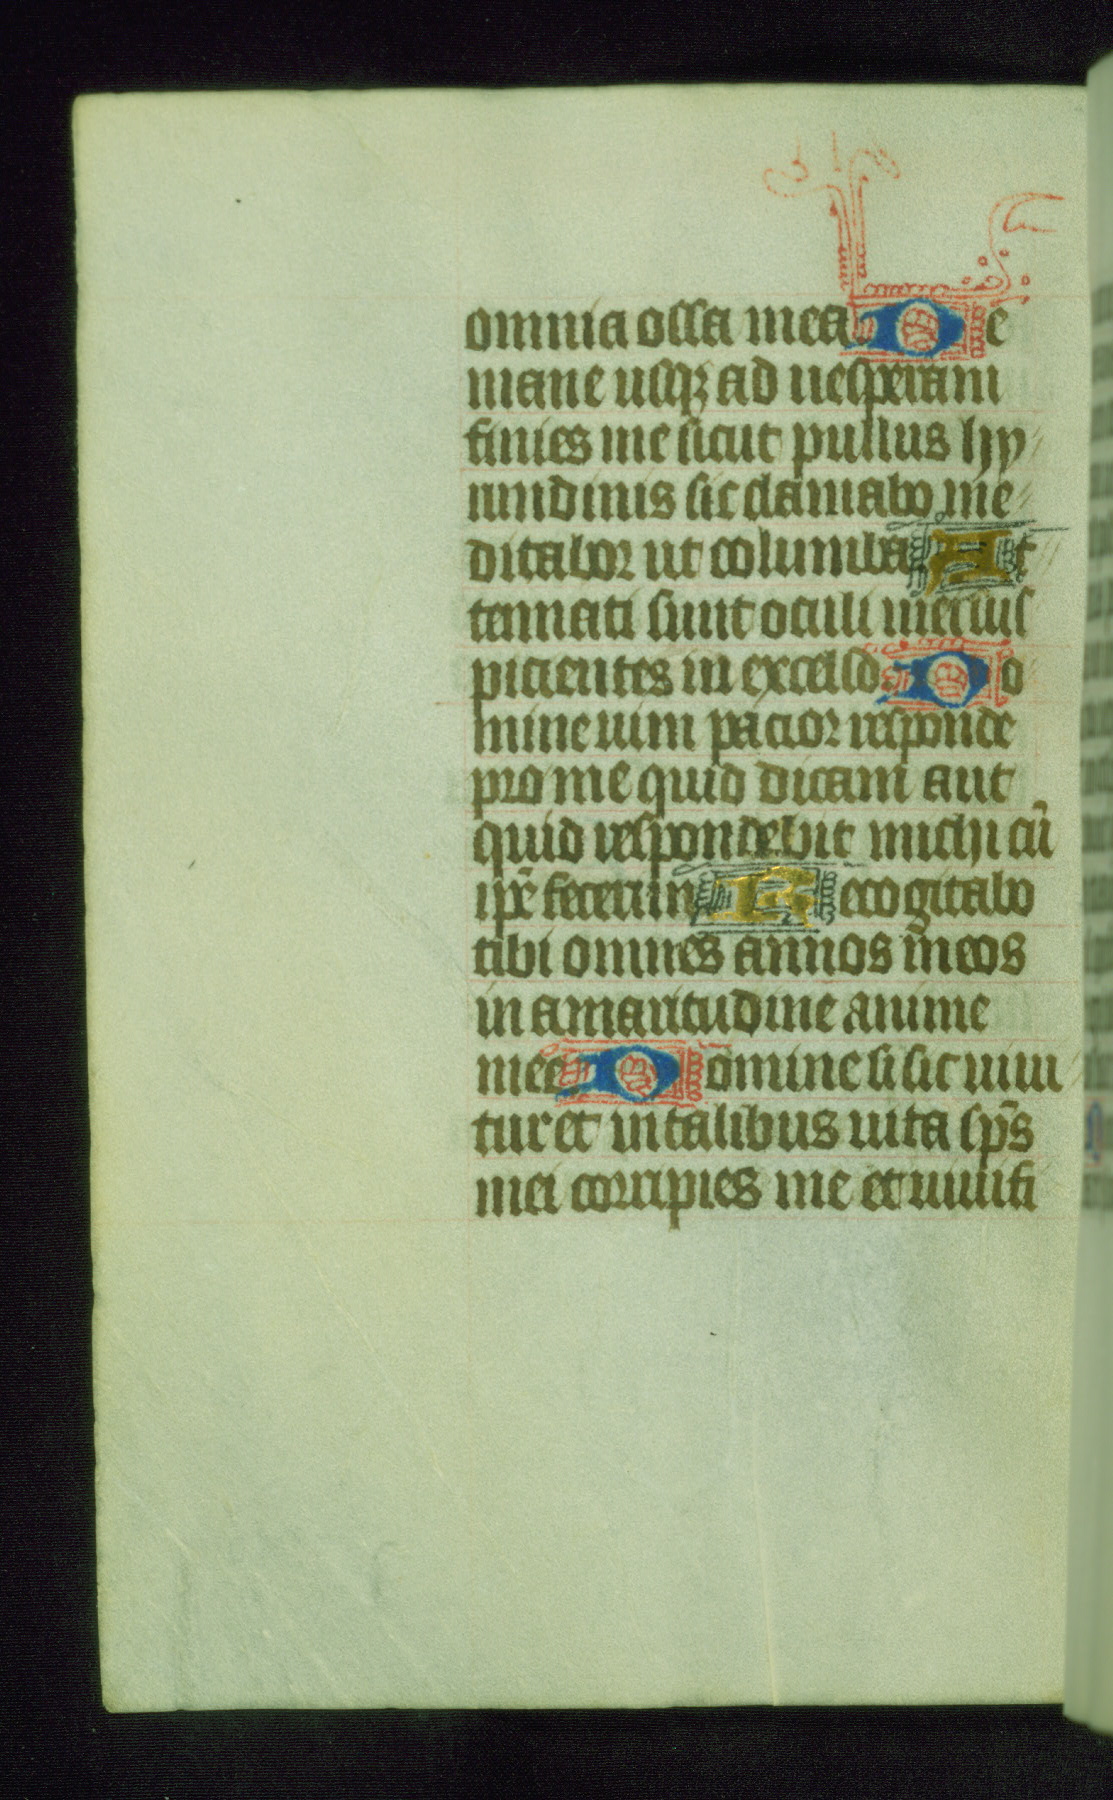 omnia ossa mea. De
mane usqz ad uesperam
finies me sicut pullus hy
rundinis sic clamabo me
ditabor ut columba At
tennati sunt oculi mei sus
picientes in excelso. Do
mine uim pacior responde
pro me quid dicam aut
quid respondebit michi cū
ip̄e fecerim Recogitabo
tibi omnes annos meos
in amaritudine anime
mee Domine si sic uiui
tur et in talibus uita sp̄s
mei corripies me et uiuifi